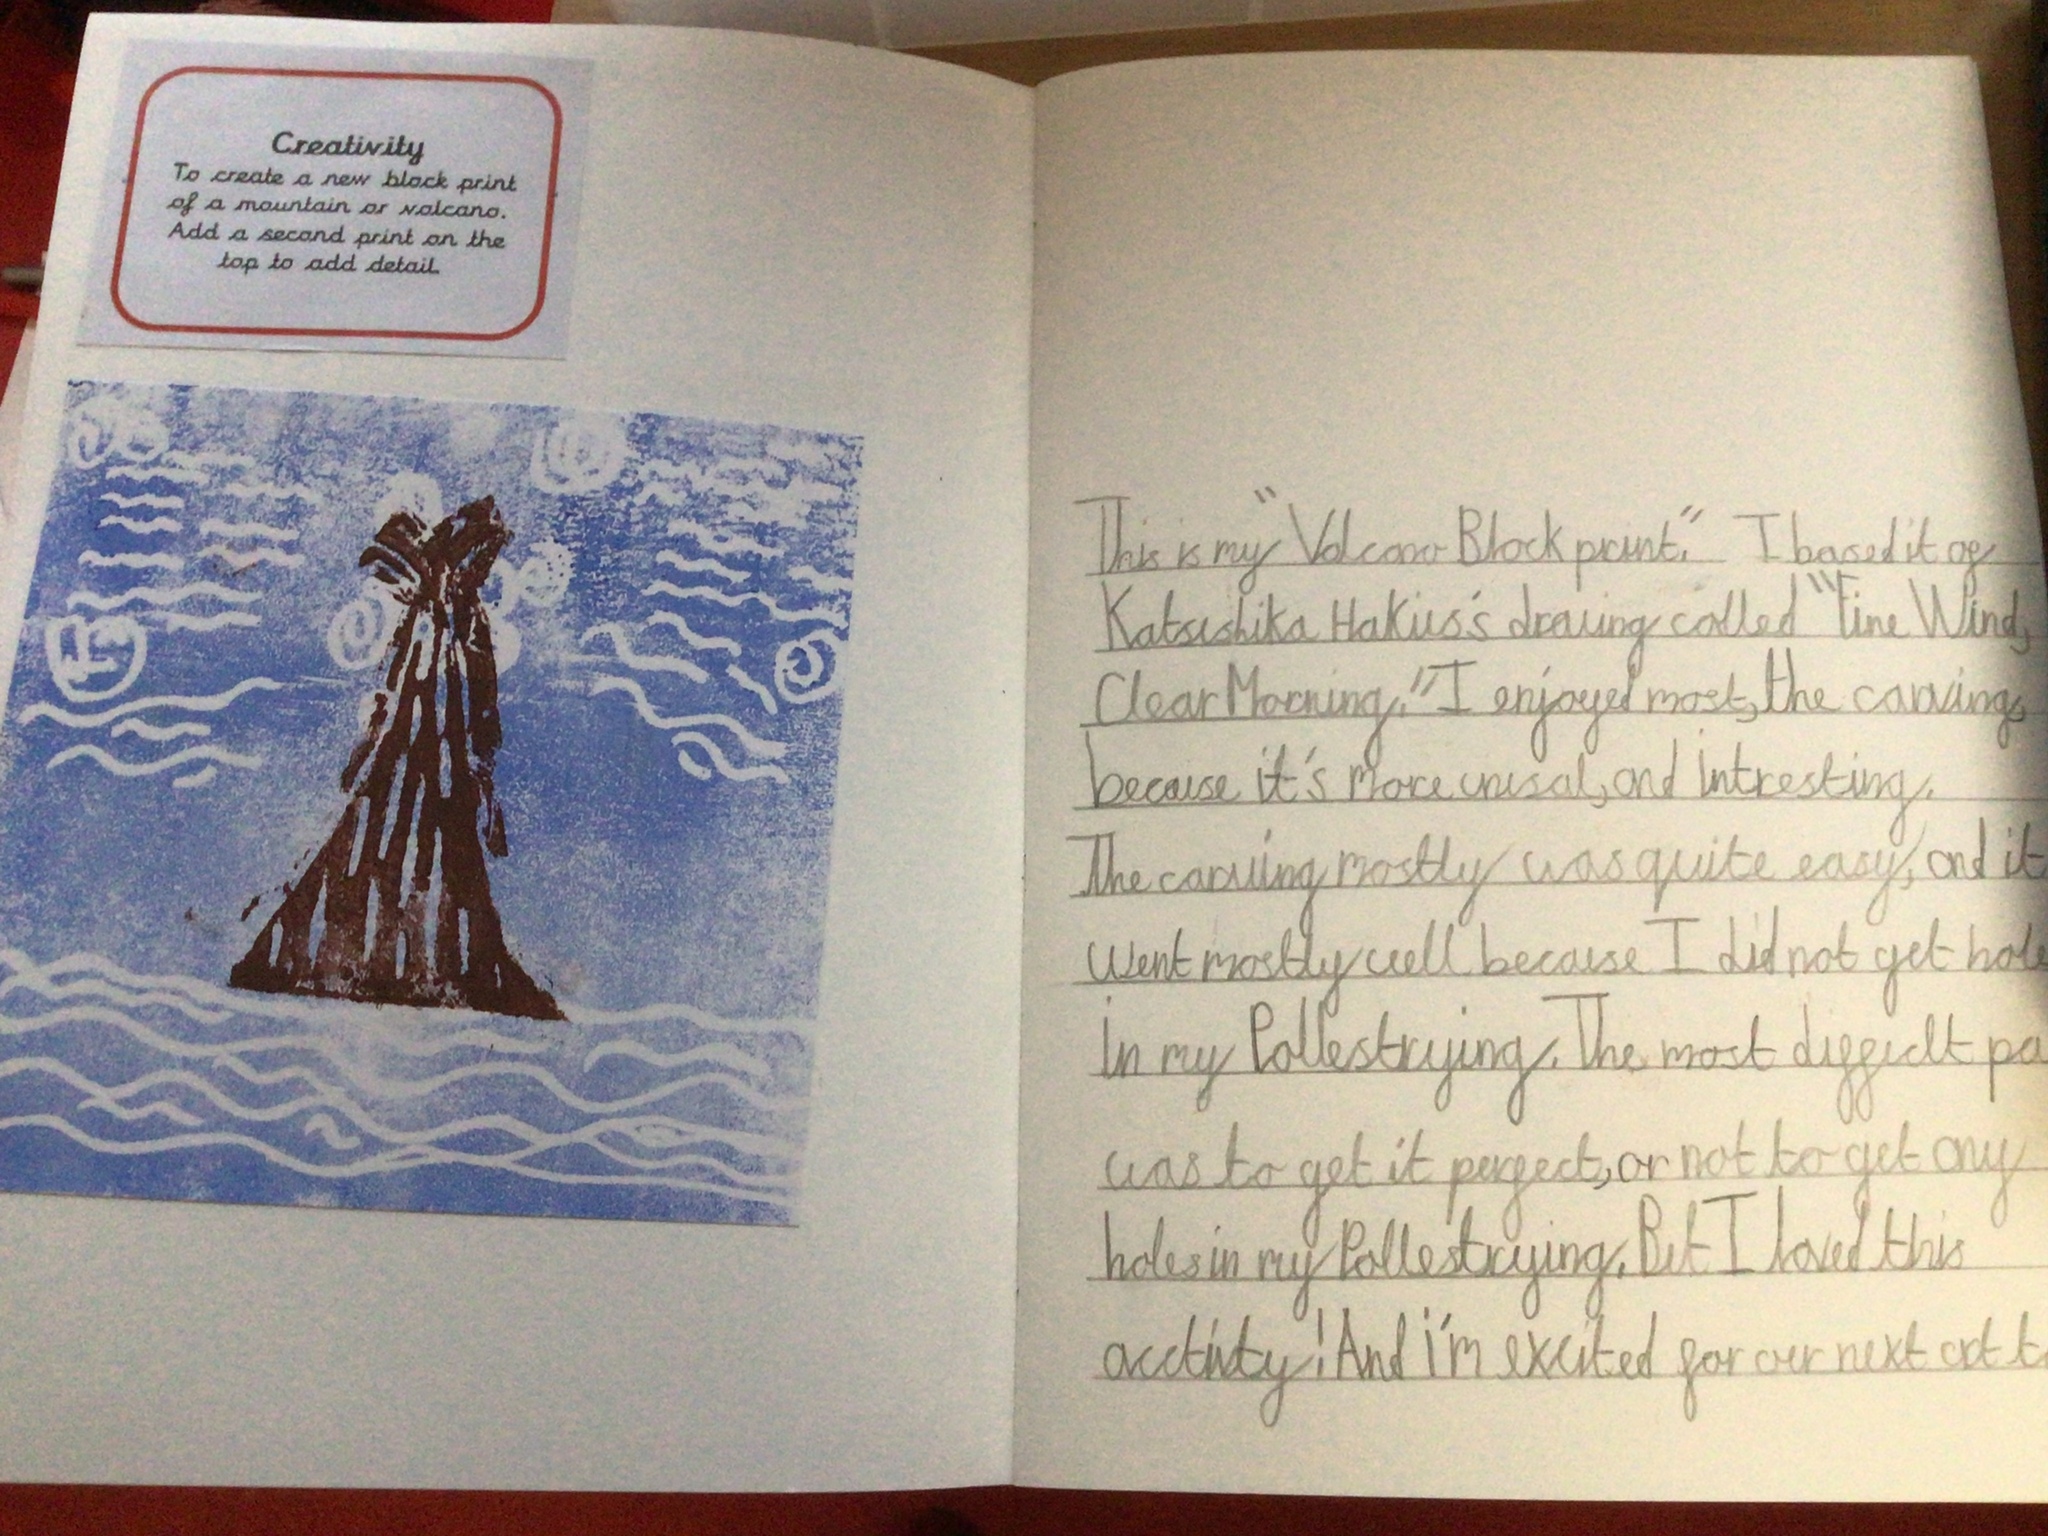 Creativity
To create a new block print
of a mountain or volcano.
Add a second print on the
top to add detail.
This is my "Volcano Block print." I based it of
Katsushika Hakius's drawing called "Fine Wind,
Clear Morning." I enjoyed most, the carving,
because it's more unusal, and intresting.
The carving mostly was quite easy, and it
went mostly well because I did not get hole
in my Pollestrying. The most difficult pa
was to get it perfect, or not to get any
holes in my Pollestrying. But I loved this
acctivty! And i'm excited for our next art t